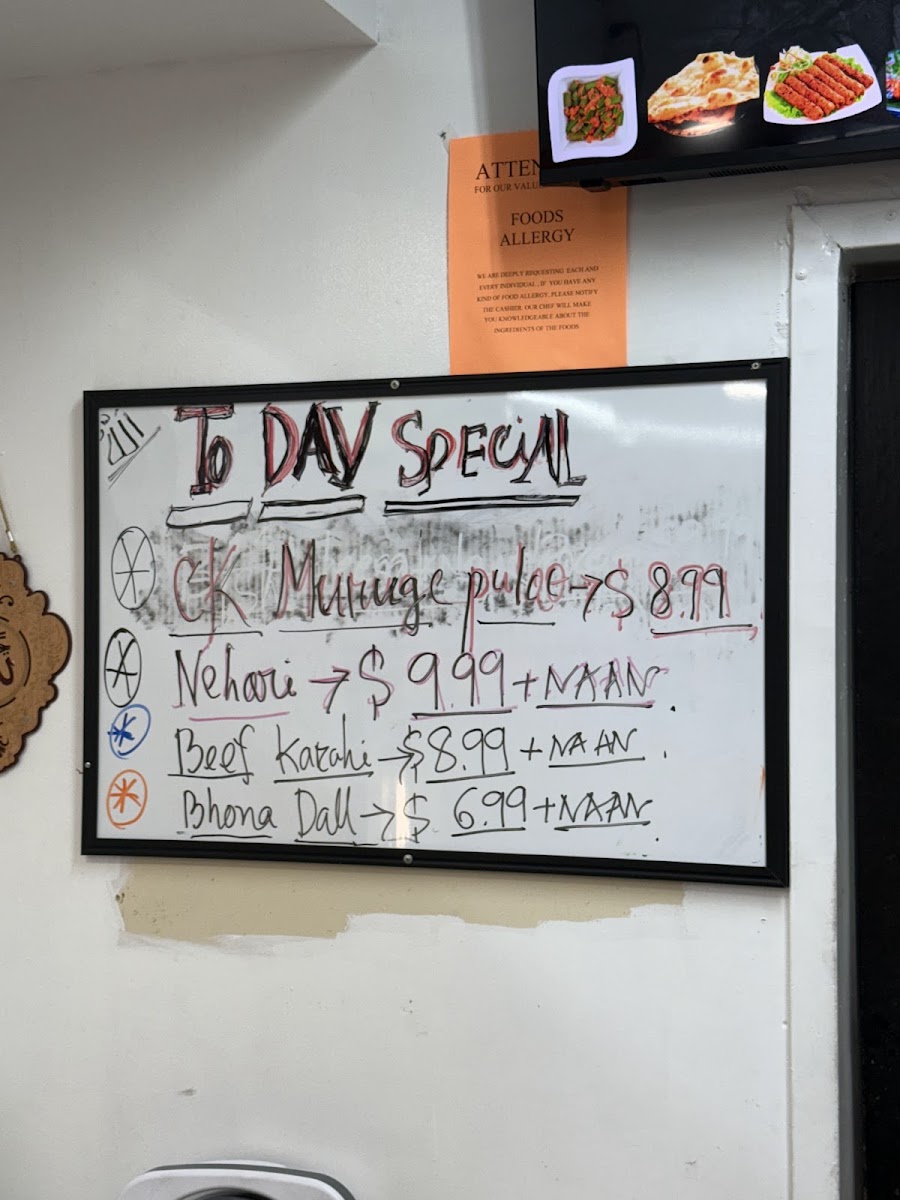 ATTEN
FOR OUR VALU
FOODS
ALLERGY
WE ARE DEEPLY REQUESTING EACH AND
EVERY INDIVIDUAL , IF YOU HAVE ANY
KIND OF FOOD ALLERGY, PLEASE NOTIFY
THE CASHIER. OUR CHEF WILL MAKE
YOU KNOWLEDGEABLE ABOUT THE
INGREDIENTS OF THE FOODS
To DAY SPECiAL
CK Muruge pulae → $ 8.99
Nehari → $ 9.99 + NAAN.
Beef Karahi → $8.99 + NAAN.
Bhona Dall → $ 6.99 + NAAN.